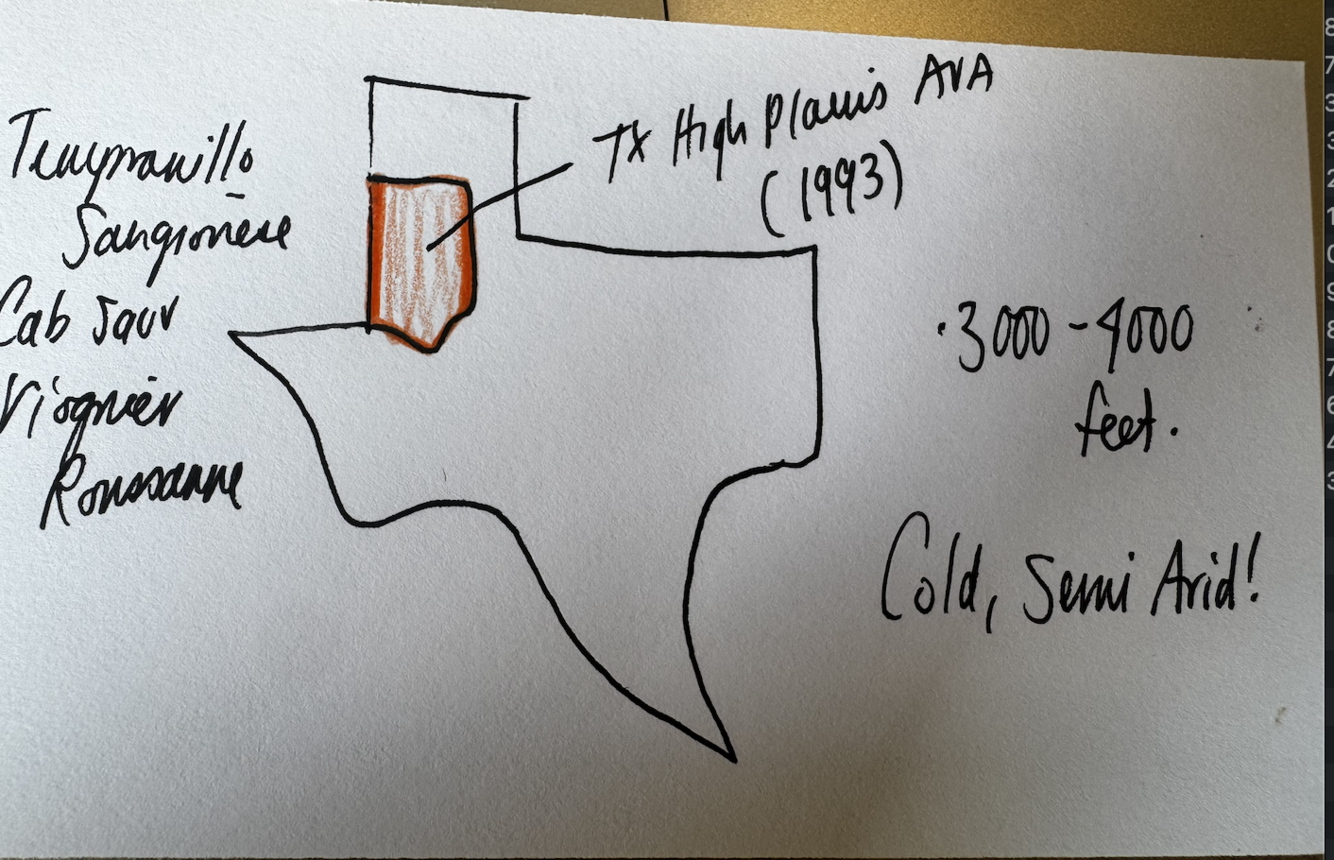 Tempranillo
Sangiovese
Cab Sauv
Viognier
Roussanne
TX High Plains AVA
(1993)
·3000-4000
feet.
Cold, Semi Arid!